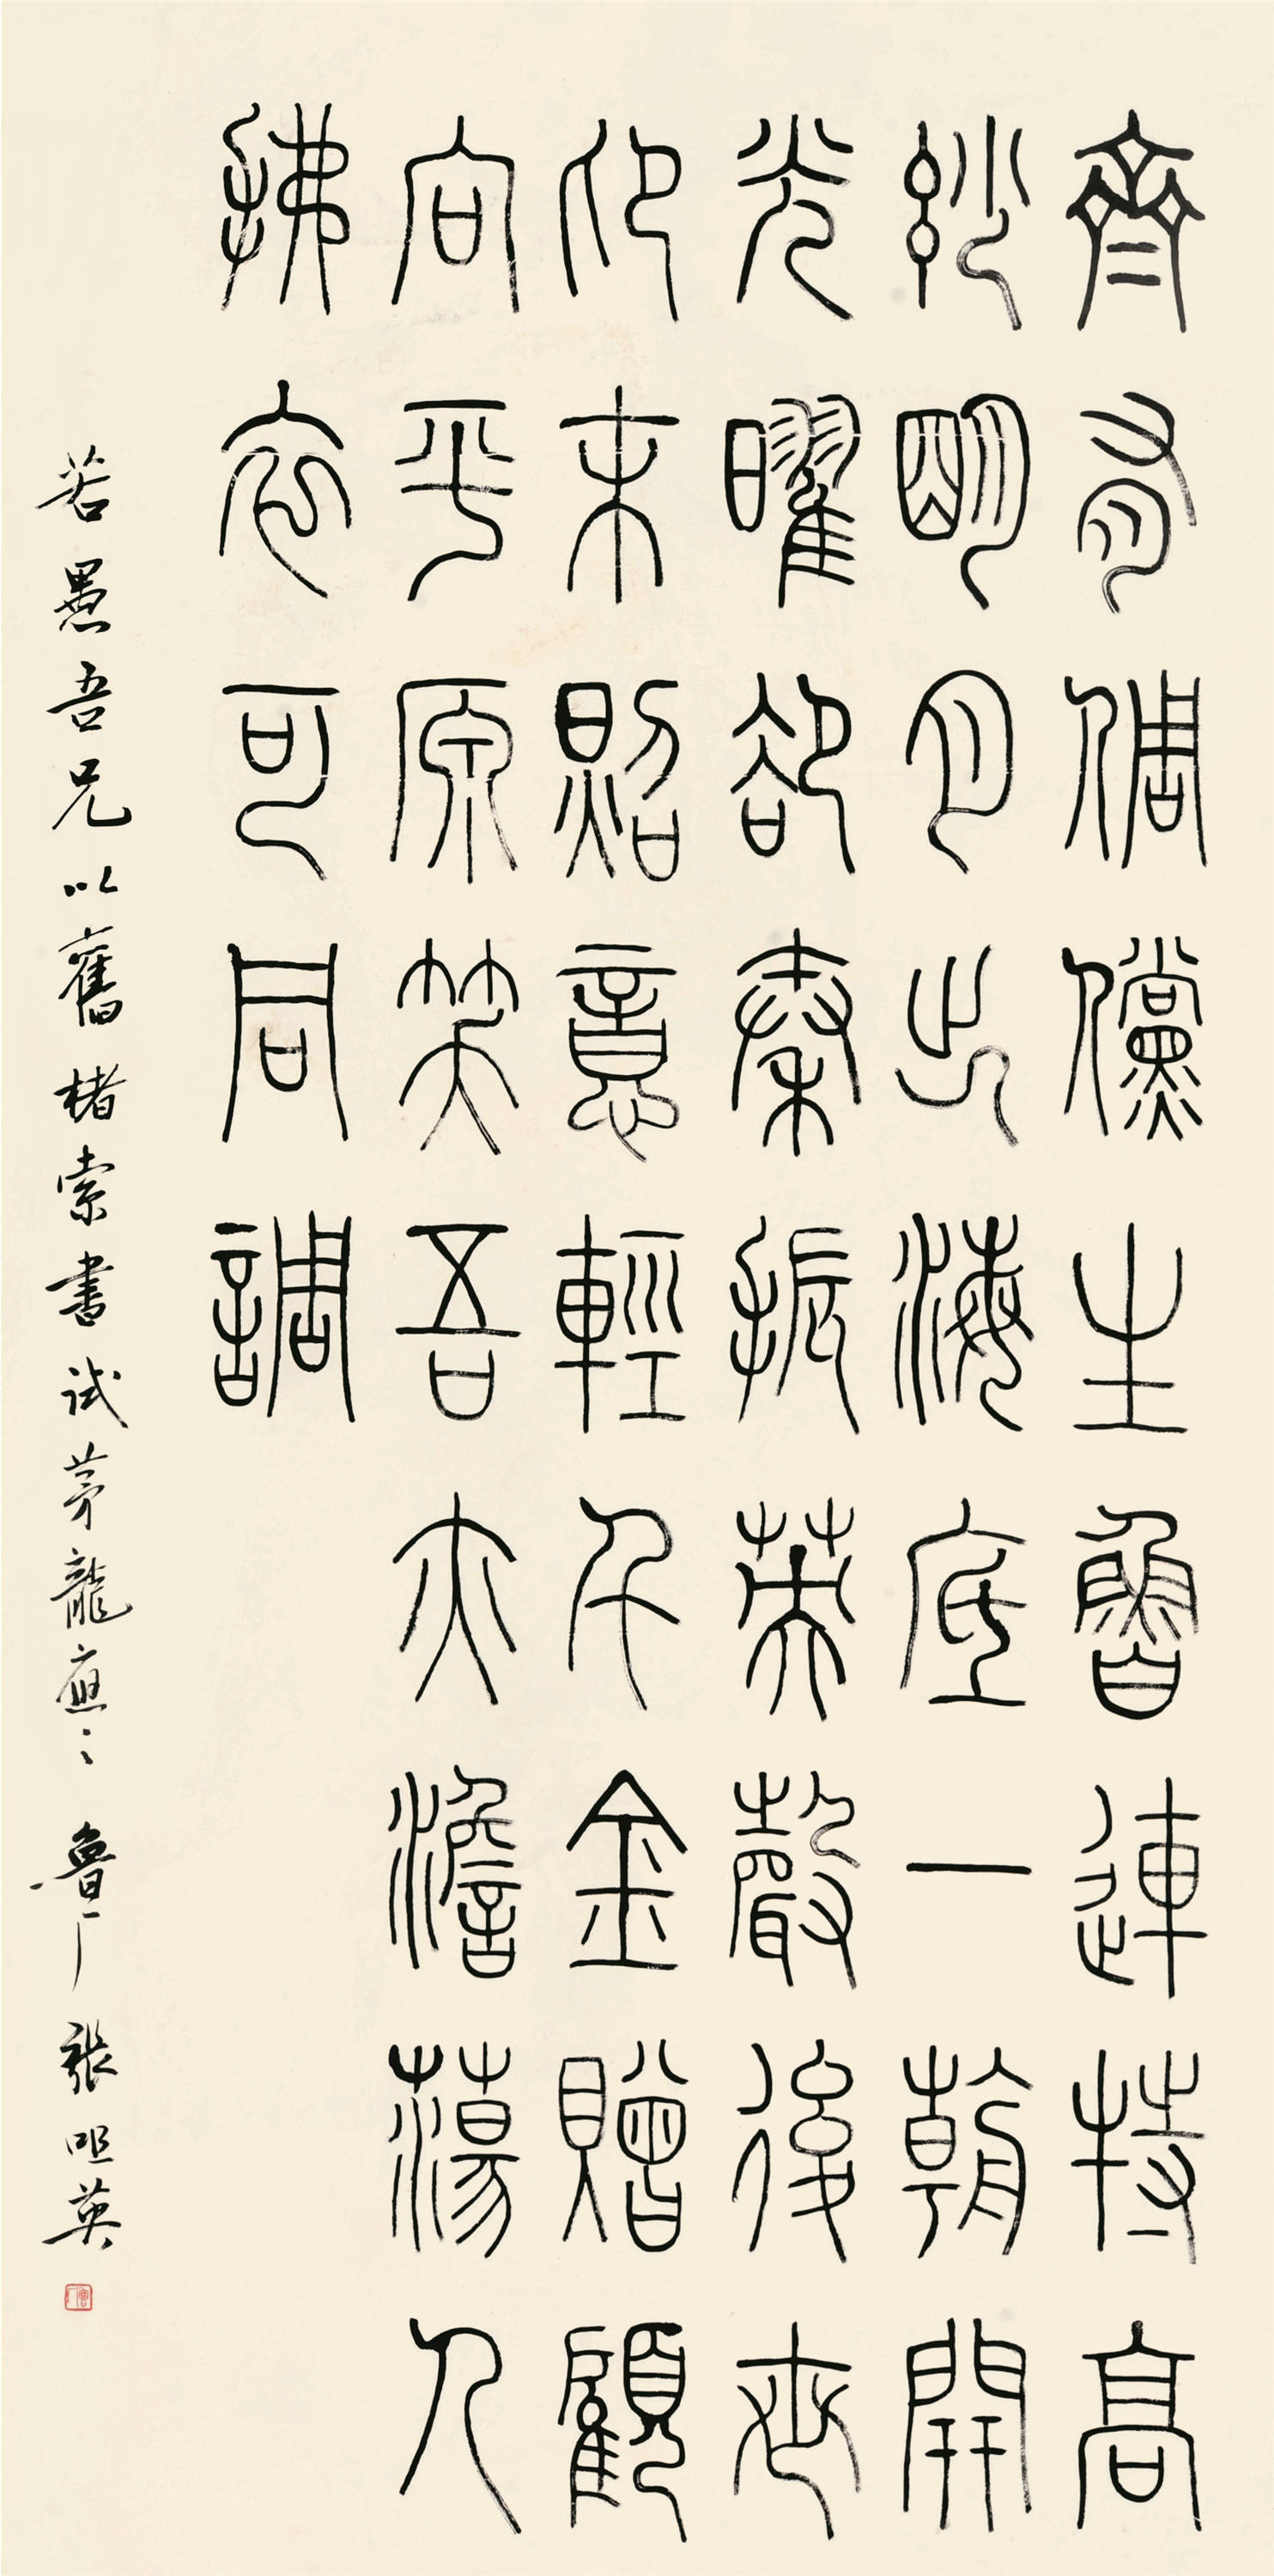 齊有倜儻生魯連特高
妙明月出海底一朝開
光曜卻秦振英聲後世
仰末照意輕千金贈顧
向平原笑吾亦澹蕩人
拂衣可同調
若愚吾兄以舊楮索書試茅龍應之 魯厂張昭英